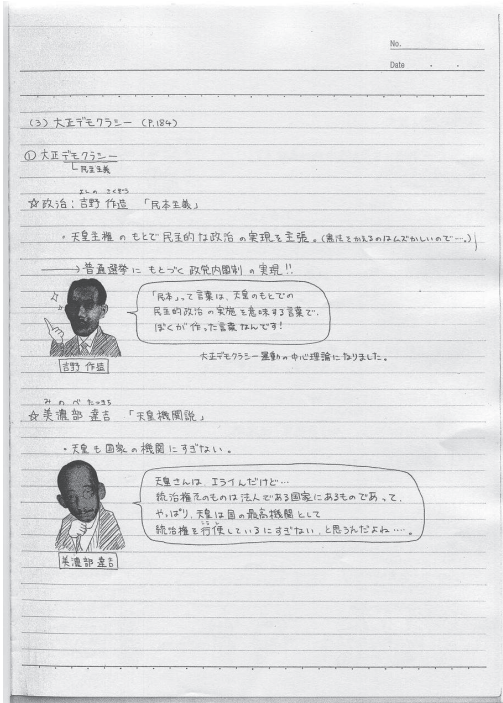 No.
Date ・ ・
(3) 大正デモクラシー (P.184)
① 大正デモクラシー
民主主義
よしの さくぞう
☆政治：吉野 作造 「民本主義」
・天皇主権のもとで民主的な政治の実現を主張。(憲法をかえるのはムズかしいので…。)
→普通選挙にもとづく政党内閣制の実現!!
「民本」って言葉は、天皇のもとでの
民主的政治の実施を意味する言葉で、
ぼくが作った言葉なんです!
吉野 作造
大正デモクラシー運動の中心理論になりました。
みのべ たつきち
☆美濃部 達吉 「天皇機関説」
・天皇も国家の機関にすぎない。
天皇さんは、エライんだけど…
統治権そのものは法人である国家にあるものであって、
やっぱり、天皇は国の最高機関として
こうし
統治権を行使しているにすぎない、と思うんだよね……。
美濃部 達吉